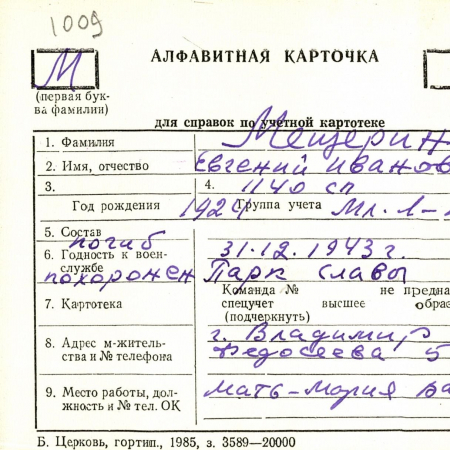 1009
М
АЛФАВИТНАЯ КАРТОЧКА
(первая бук-
ва фамилии)
для справок по учетной картотеке
1. Фамилия Мещерин
2. Имя, отчество Евгений Иванов
3. 4. 1140 сп
Год рождения 1924 Группа учета Мл. л-
5. Состав
погиб 31.12.1943 г.
6. Годность к воен-
службе
похоронен Парк славы
7. Картотека Команда № не предна
спецучет высшее образ
(подчеркнуть)
8. Адрес м-житель-
ства и № телефона
г. Владимир
Федосеева 5
9. Место работы, дол-
жность и № тел. ОК
мать-Мария Ва
Б. Церковь, гортип., 1985, з. 3589—20000